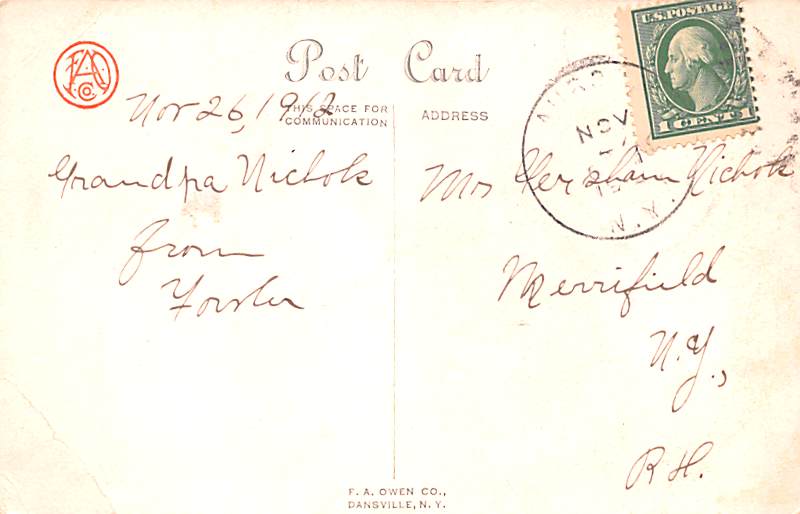 FAO
Co
Post Card
THIS SPACE FOR
COMMUNICATION
ADDRESS
Nov 26, 1912
Grandpa Nichols
from
Fowler
U.S. POSTAGE
1 CENT 1
NOV
N.Y.
Mrs Hersham Nichols
Merrifield
N.Y.,
R.H.
F. A. OWEN CO.,
DANSVILLE, N. Y.